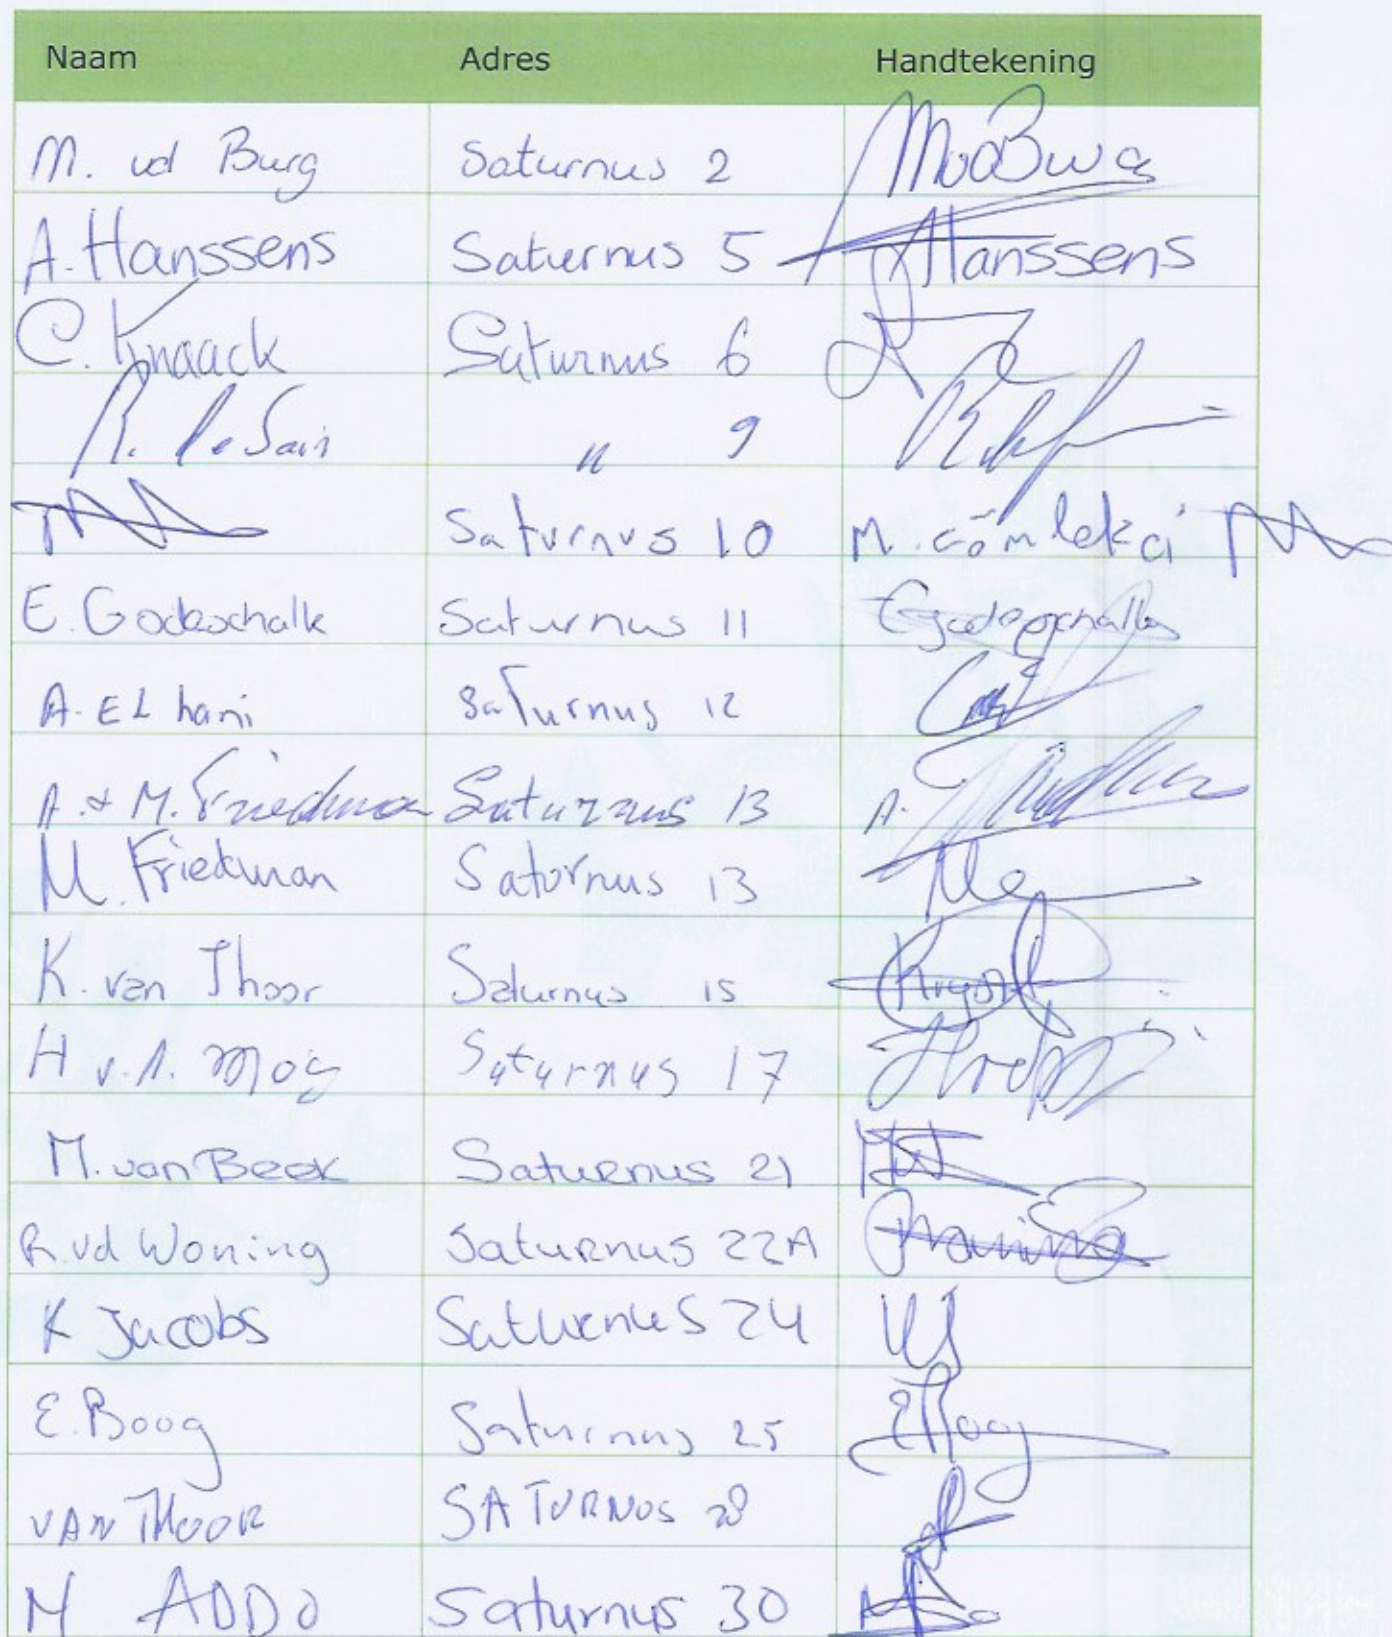 Naam Adres Handtekening
M. vd Burg Saturnus 2
A. Hanssens Saturnus 5 Hanssens
C. Knaack Saturnus 6
R. le Sair " 9
Saturnus 10 M. cömlekci
E. Godeschalk Saturnus 11 Egodeschalk
A. EL hani Saturnus 12
A. & M. Friedman Saturnus 13 A.
M. Friedman Saturnus 13
K. van Thoor Saturnus 15
H v.d. Saturnus 17
M. van Beek Saturnus 21
R. vd Woning Saturnus 22A
K Jacobs Saturnus 24 KJ
E. Boog Saturnus 25 EBoog
VAN THOOR SATURNUS 28
M ADDO Saturnus 30